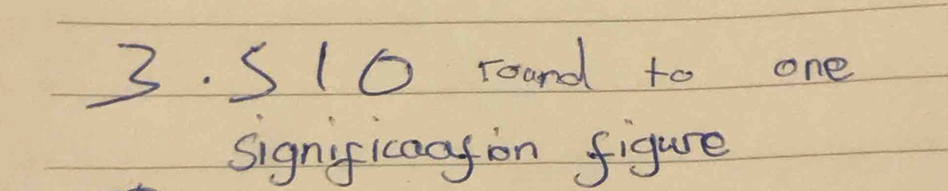 3.510 round to one
significaafion figure